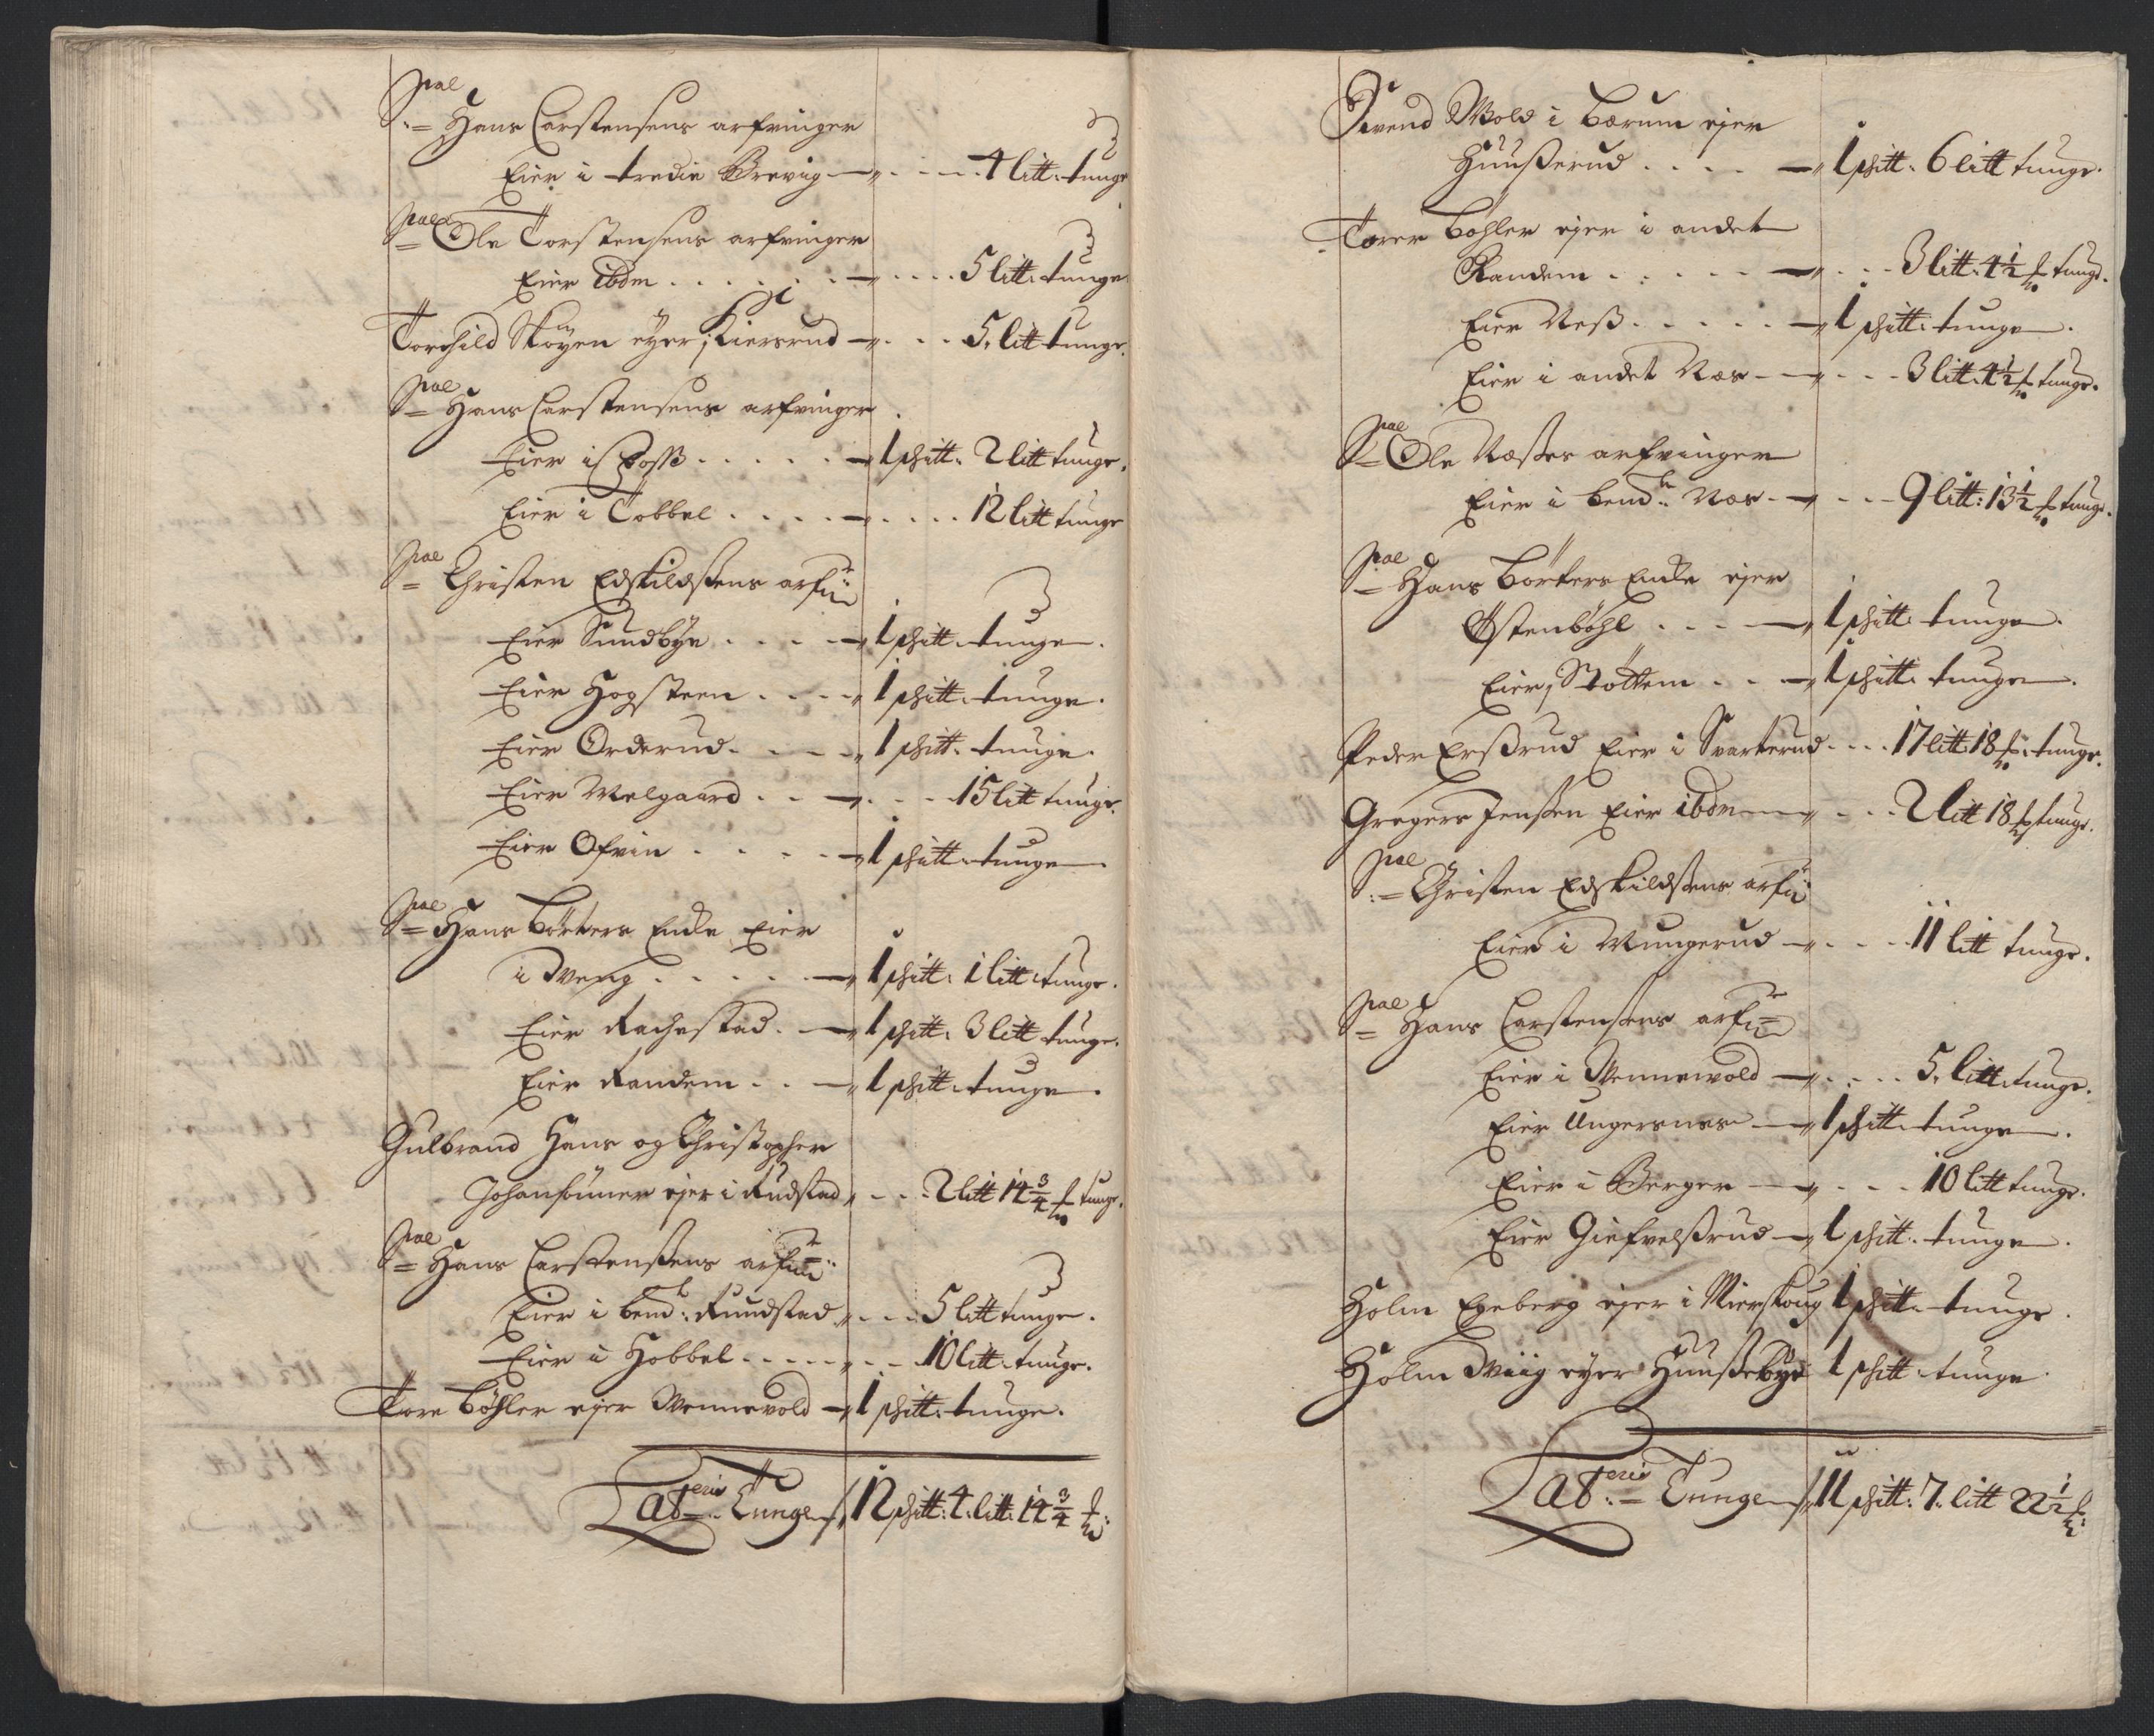 Sal
= Hans Carstensens arfvinger
Eier i tredie Brevig — 4 litt: tunge
Sal = Ole Torstensens arfvinger
Eier ibdm — 5 litt: tunge
Torchild Skøyen eyer i Kiersrud — 5, litt tunge.
Sal = Hans Carstensens arfvinger
Eier i — 1 skitt: 2 litt tunge.
Eier i Tobbel — 12 litt tunge
Sal = Christen Edskildssens arf:
Eier Sundbye — 1 skitt tunge.
Eier Hogsteen — 1 skitt: tunge.
Eier Orderud — 1 skitt: tunge.
Eier Melgaard — 15 litt tunge.
Eier Ofrin — 1 skitt tunge
Sal = Hans Börters Encke Eier
i Dveng — 1 skitt: 1 litt: tunge.
Eier Rachestad — 1 skitt: 3 litt tunge.
Eier Randem — 1 skitt: tunge.
Gulbrand Hans og Christopher
Johansønner ejer i Rudstad — 2 litt 14 3/4 tunge.
Sal = Hans Carstenssens arf:
Eier i bemd: Ruudstad — 5 litt tunge.
Eier i Hobbel — 10 litt: tunge.
Tore Böhler ejer Wennevold — 1 skitt: tunge.
Lateris Tunge 12 skitt: 4: litt: 14 3/4
Svend Wold i Bærum ejer
Huusserud — 1 skitt: 6 litt tunge.
Torer Böhler ejer i andet
Randem — 3 litt: 4 1/2 tunge.
Eier Ness — 1 skitt: tunge.
Eier i andet Næs — 3 litt: 4 1/2 tunge.
Sal = Ole Næsses arfvinger
Eier i bemd: Næs — 9 litt: 13 1/2 tunge.
Sal = Hans Börters Encke ejer
Østenböhl — 1 skitt: tunge.
Eier Stöttem — 1 skitt: tunge.
Peder Erssrud Eier i Svarterud — 17 litt 18 tunge.
Gregers Jenssen Eier ibdm — 2 litt 18 tunge.
Sal
= Christen Edskildssens arf:
Eier i Mungerud — 11 litt tunge.
Sal = Hans Carstensens arf:
Eier i Wennevold — 5, litt: tunge.
Eier Ungersnes — 1 skitt: tunge.
Eier i Berger — 10 litt tunge.
Eier Giefvelssrud — 1 skitt: tunge.
Holm Egeberg ejer i Mierskoug 1 skitt: tunge.
Holm Dviig eyer Huussebye 1 skitt: tunge
Lateris = Tunge 11 skitt: 7: litt 22 1/2